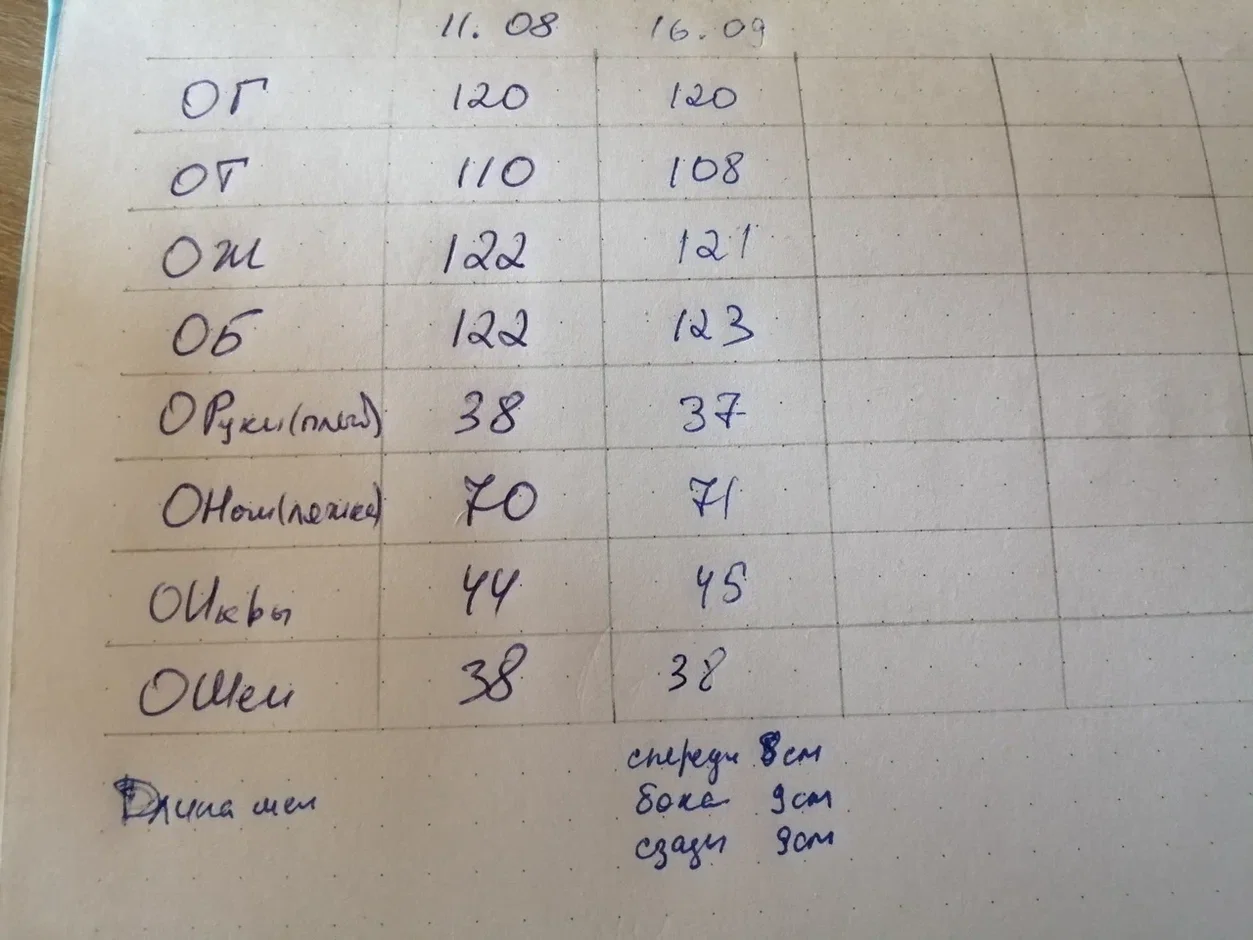 11.08 16.09
ОГ 120 120
ОТ 110 108
ОЖ 122 121
ОБ 122 123
ОРуки(плеч) 38 37
ОНоги(ляжка) 70 71
ОИкры 44 45
ОШеи 38 38
спереди 8см
Длина шеи бока 9см
сзади 9см